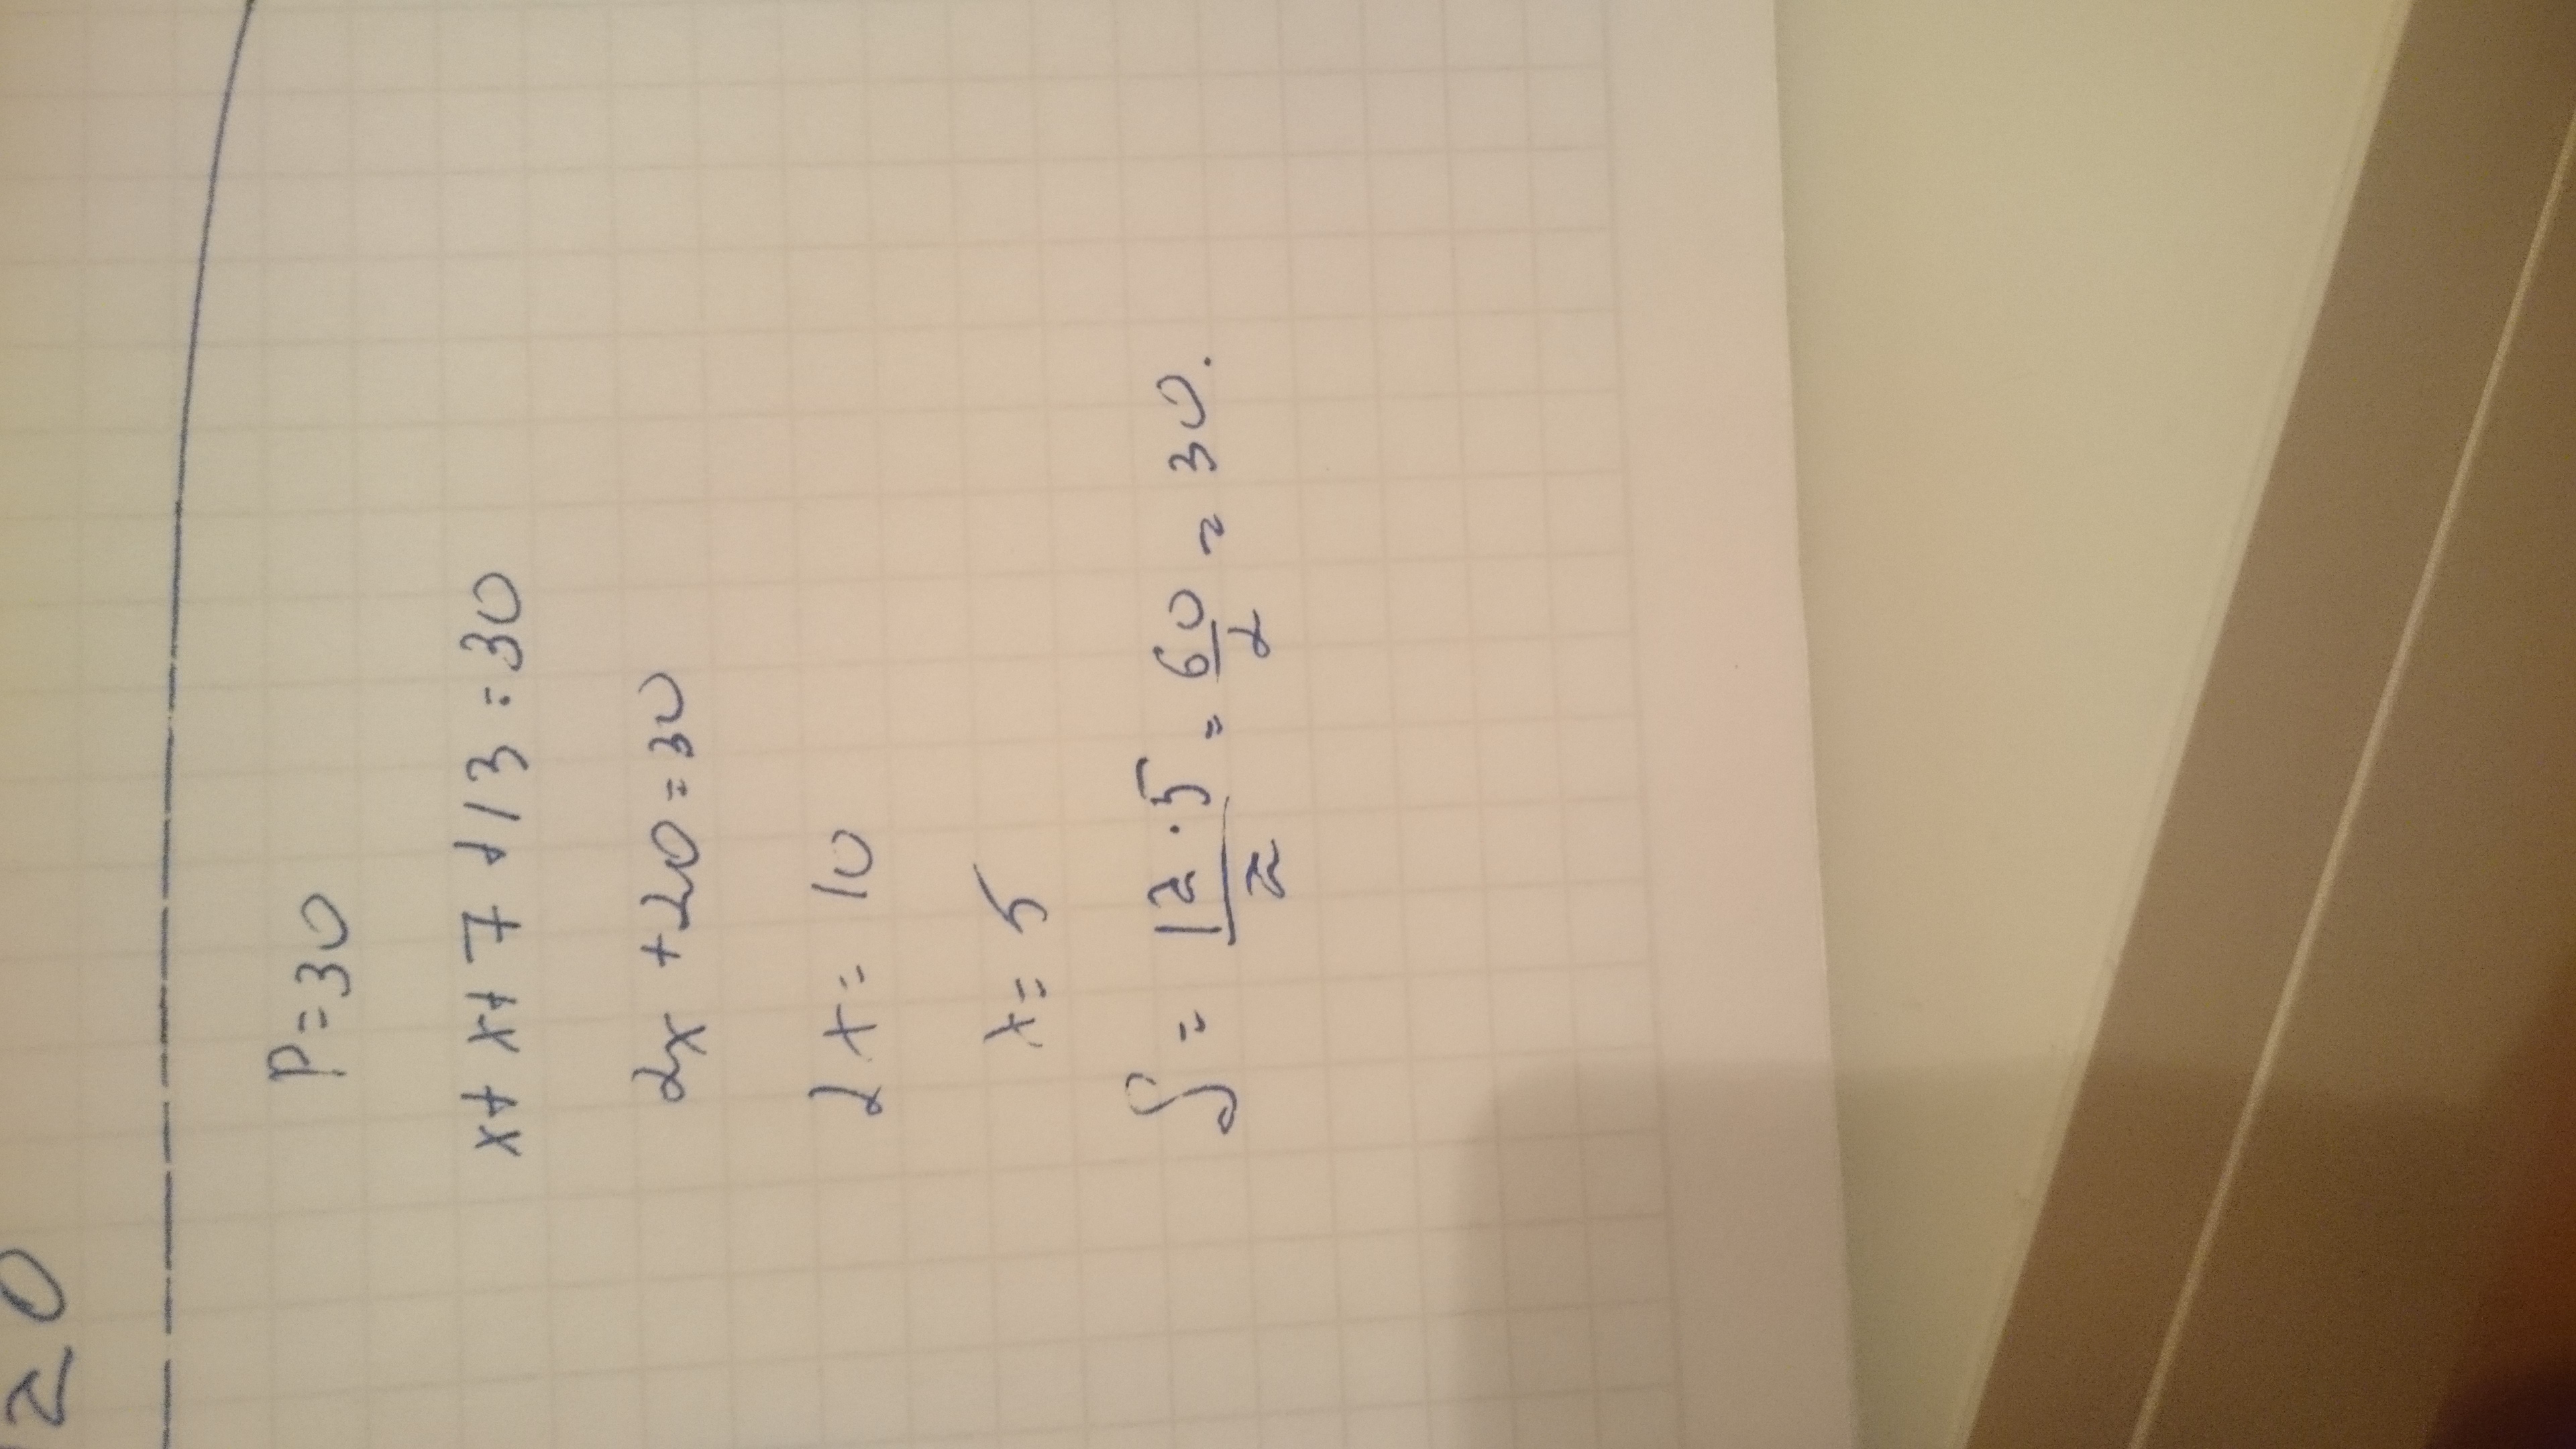 20
P=30
x+x+7+13=30
2x+20=30
2x=10
x=5
S = 12·5/2 = 60/2 = 30.